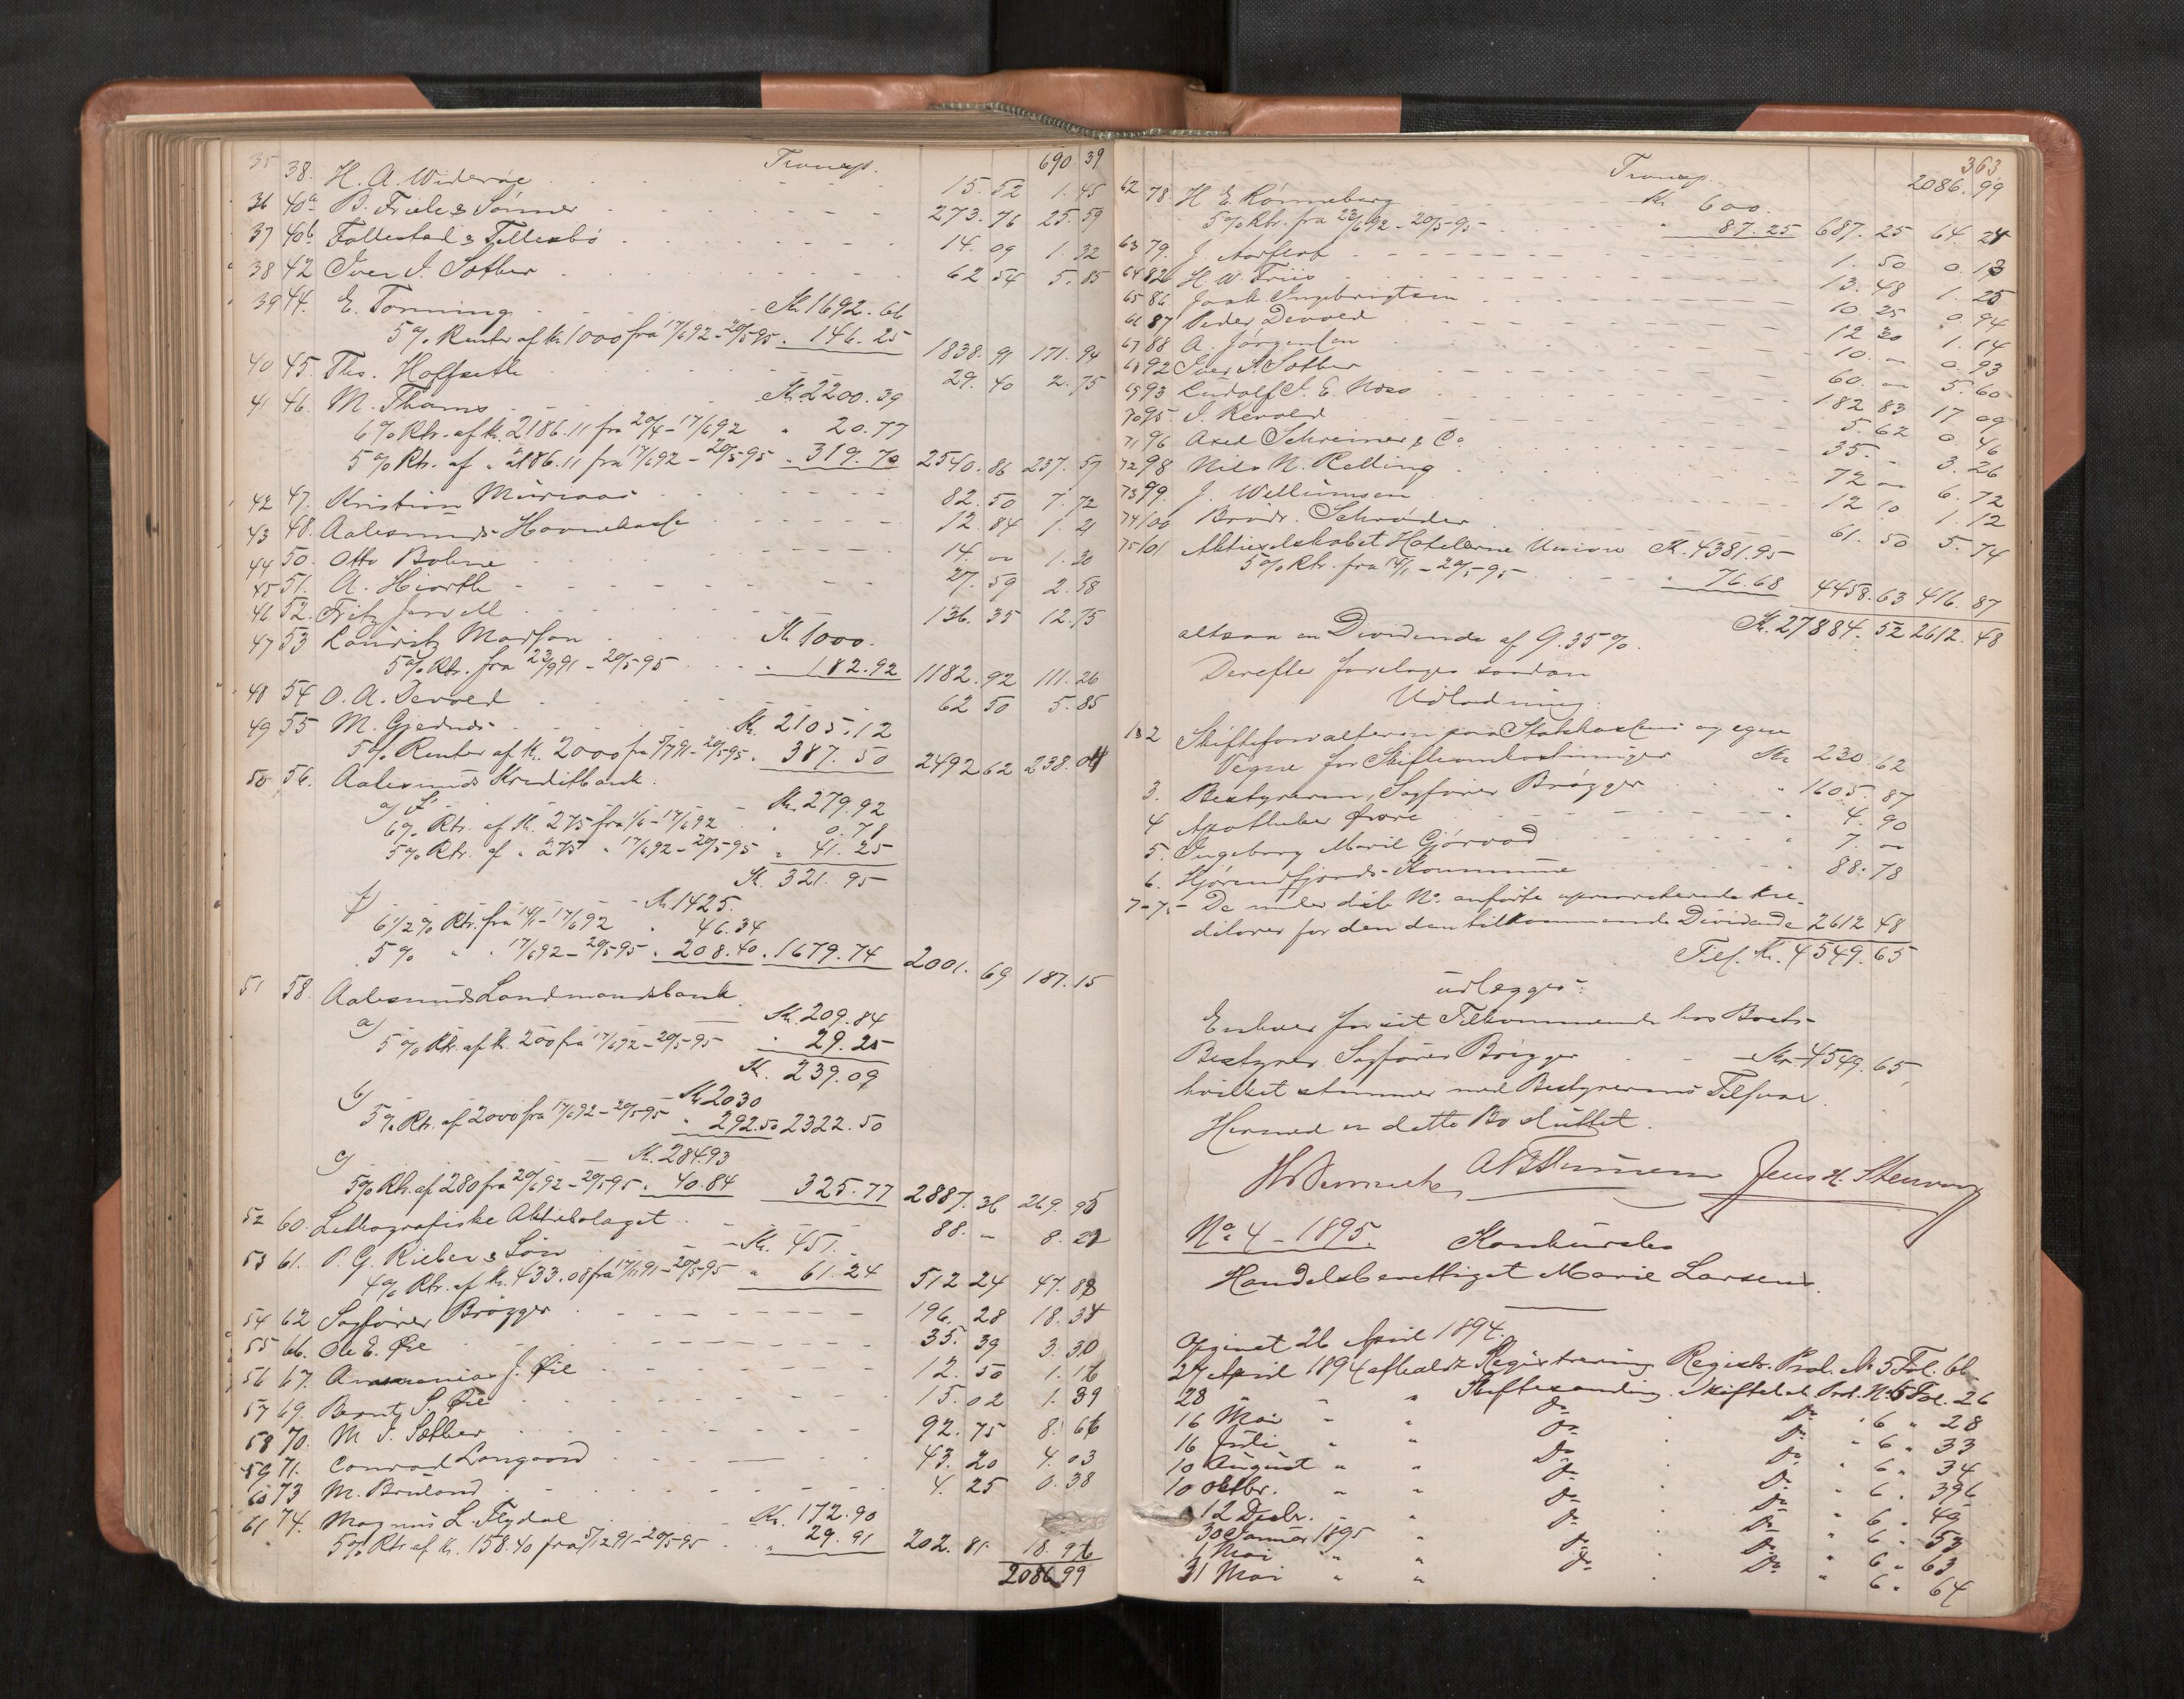 Transp. 690.39
35 38. H. A. Widerøe 15.52 1.45
36 40a B. Friele & Sønner 273.76 25.59
37 40b Follestad & Tellesbø 14.09 1.32
38 42 Iver I. Sæther 62 54 5.85
39 44. E. Tonning Kr. 1692.66
5% Renter af kr. 1000 fra 17/6 92 - 20/5 95 . 146.25 1838.91 171.94
40 45. Ths. Hoffseth 29.40 2.75
41 46. M. Thams Kr. 2200.39
6% Rtr. af kr. 2186.11 fra 20/4 - 17/6 92 " 20.77
5% Rtr. af " 2186.11 fra 17/6 92 - 20/5 95 " 319.70 2540.86 237.57
42 47. Kristian 82.50 7.72
43 48. Aalesunds Havnekasse 12.84 1.21
44 50. Otto Bohne 14 " 1.30
45 51. A. Hiorth 27.59 2.58
46 52. Fritz Jervell 136.35 12.75
47 53 Lauritz Madsen Kr. 1000.
5% Rtr. fra 23/9 91 - 20/5 95 " 182.92 1182.92 111.26
48 54 O. A. Devold 62 50 5.85
49 55 M. Gjednes Kr. 2105.12
5% Renter af kr. 2000 fra 5/7 91 - 20/5 95 . 387.50 2492 62 238.04
50 56. Aalesunds Kreditbank.
a) Kr. 279.92
6% Rtr. af kr. 275 fra 1/6 - 17/6 92 " 0.78
5% Rtr. af " 275 " 17/6 92 - 20/5 95 " 41.25
Kr. 321.95
b) Kr. 1425.
6 1/2% Rtr. fra 14/1 - 17/6 92 " 46.34
5% " " 17/6 92 - 20/5 95 . 208.40 . 1679.74 2001.69 187.15
51 58. Aalesunds Landmandsbank.
a) Kr. 209.84
5% Rtr. af kr. 200 fra 17/6 92 - 20/5 95 " 29.25
Kr. 239.09
b) Kr. 2030
5% Rtr. af 2000 fra 17/6 92 - 20/5 95 " 292.50 2322.50
c) Kr. 284.93
5% Rtr. af 280 fra 20/6 92 - 20/5 95 . 40.84 325.77 2887.36 269.95
52 60. Lithografiske Aktiebolaget 88. " 8.22
53 61. P. G. Rieber & Søn Kr. 451.
4% Rtr. af kr. 433.08 fra 17/11 91 - 20/5 95 " 61.24 512 24 47.88
54 62 Sagfører Brøgger 196.28 18.34
55 66. Ole E. Øie 35.39 3.30
56 67. J. Øie 12.50 1.16
57 69. Bernt S. Øie 15.02 1.39
58 70. M. I. Sæther 92.75 8.66
59 71. Conrad Langaard 43.20 4.03
60 73 M. Bruland 4.25 0.38
61 74. Magnus L. Flydal Kr. 172.90
5% Rtr. af kr. 158.40 fra 5/12 91 - 20/5 95 " 29.91 202.81 18.96
2086.99
363
Transp. 2086.99
62 78 H. E. Rønneberg Kr. 600.
5% Rtr. fra 23/6 92 - 20/5 95 " 87.25 687.25 64.24
63 79. J. Aarflot 1.50 0.13
64 82 H. W. Friis 13.48 1.25
65 86 Jacob Ingebrigtsen 10.25 0.94
66 87 Peder Devold 12 30 1.14
67 88 A. Jørgensen 10. " 0.93
68 92 Iver I. Sæther 60. " 5.60
69 93 Rudolf I. E. Moss 182 83 17 09
70 95 I. Revold 5.62 0.46
71 96 Axel Schreiner & Co 35. " 3.26
72 98 Nils N. Relling 72 " 6.72
73 99. J. Wellumsen 12 10 1.12
74 100 Brødr. Schrøder 61.50 5.74
75 101 Aktieselskabet Hotellerne Union Kr. 4381.95
5% Rtr. fra 14/1 - 20/5 95 " 76.68 4458.63 416.87
Kr. 27884.52 2612.48
altsaa en Dividende af 9.35%.
Derefter foretoges saadan
Udlodning:
1 & 2 Skifteforvalteren paa Statskassens og egne
Vegne for Skifteomkostninger Kr. 230.62
3. Bestyreren, Sagfører Brøgger " 1605.87
4 Apotheker " 4.90
5. Ingeborg Marie Gjørvad " 7. "
6. Hjørundfjords Kommune " 88.78
7-75 De under disse No. anførte uprioriterede Kre-
ditorer for den dem tilkommende Dividende 2612 48
Tils. Kr. 4549.65
udlegges:
Enhver for sit Tilkommende hos Boets
Bestyrer Sagfører Brøgger Kr. 4549.65,
hvilket stemmer med Bestyrerens Tilsvar.
Hermed er dette Bo sluttet.
Jens H. Stenvaag
No 4 - 1895. Konkursbo
Handelsberettiget Marie Larsens.
Opgivet 26 April 1894.
27 April 1894 afholdt Registrering Registr. Prot. No 5 Fol. 66
28 " " Skiftesamling. Skiftesl. Prot. No 6 Fol. 26
16 Mai " " Do Do " 6 " 28
16 Juli " " Do Do " 6 " 33
10 August " " Do Do " 6 " 34
10 Oktbr. " " Do Do " 6 " 396
12 Decbr. " " Do Do " 6 " 49
30 Januar 1895 " Do Do " 6 " 53
1 Mai " " Do Do " 6 " 63
31 Mai " " Do Do " 6 " 64